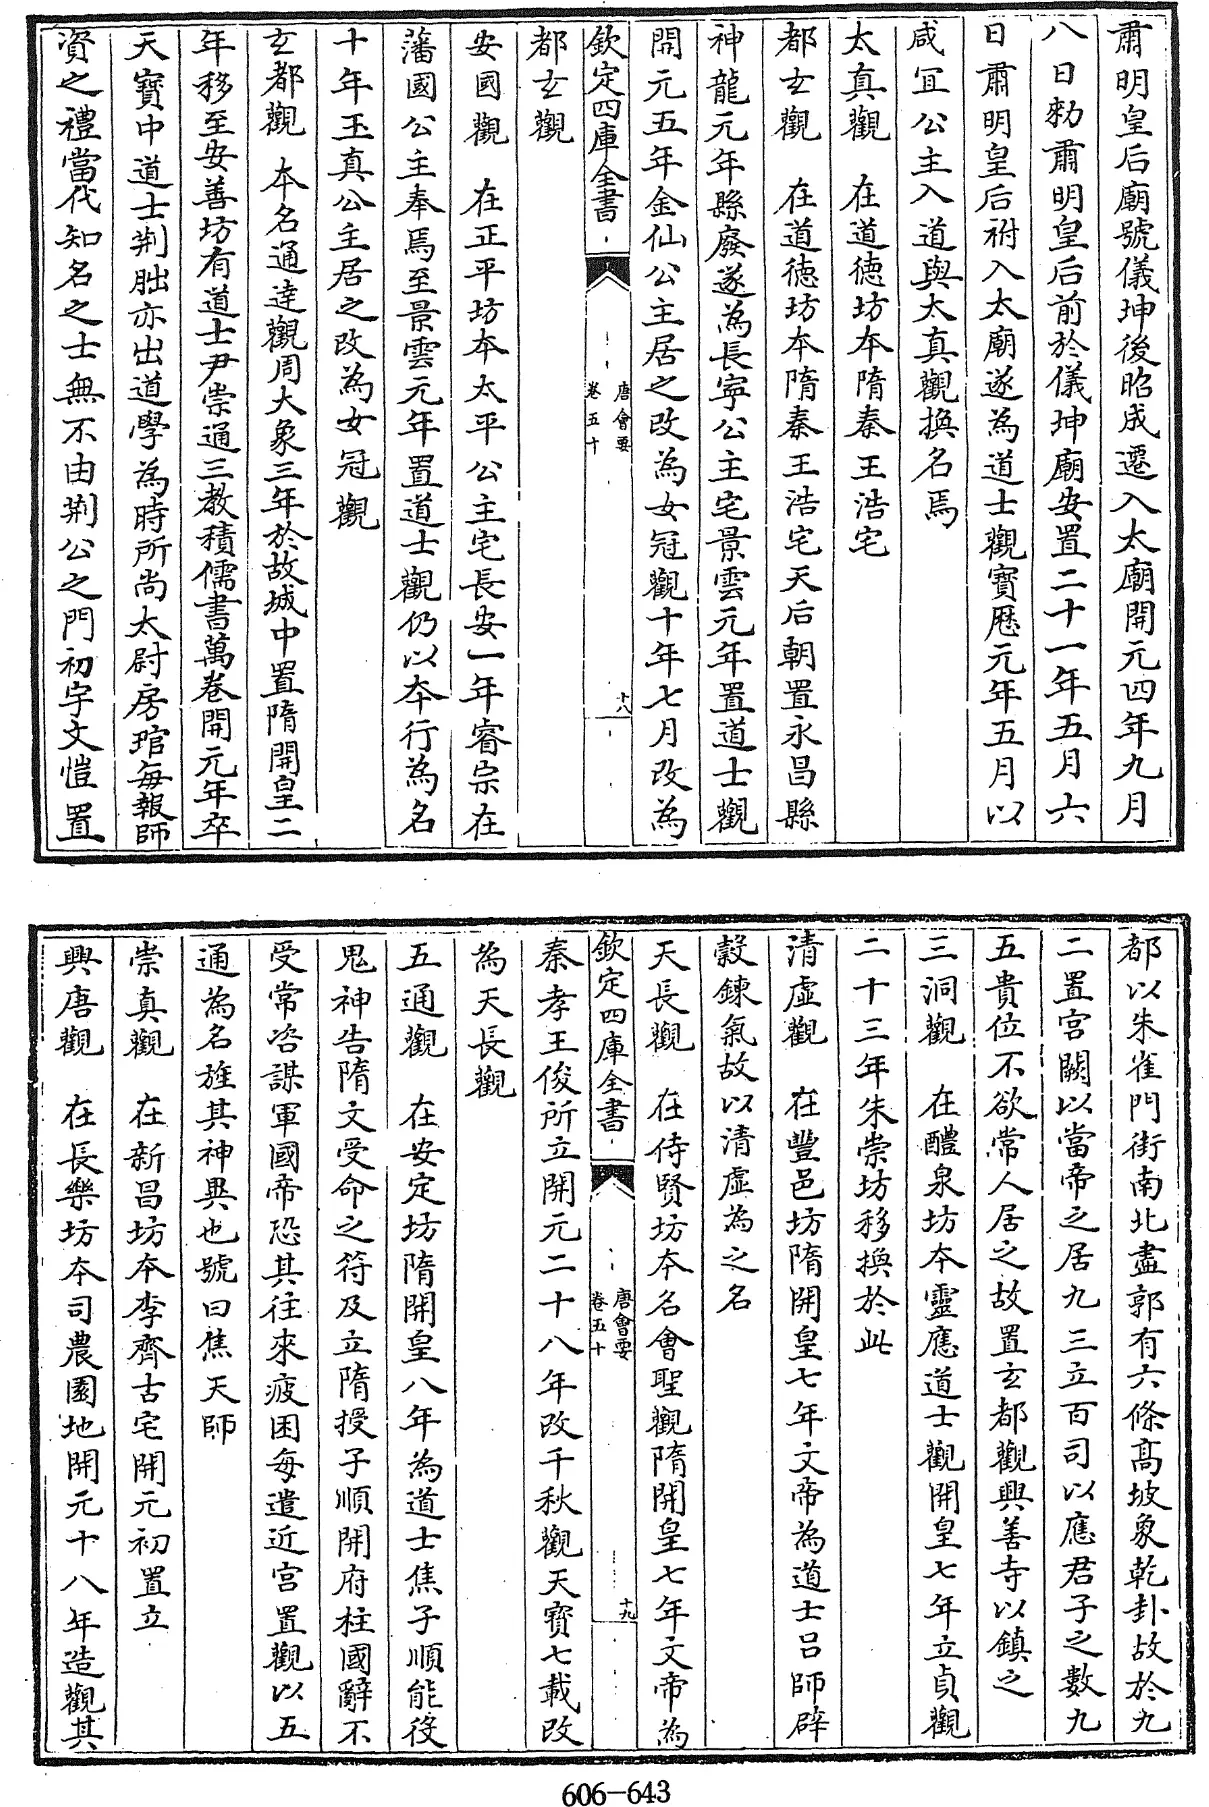 肅明皇后廟號儀坤後昭成遷入太廟開元四年九月
八日勑肅明皇后前於儀坤廟安置二十一年五月六
日肅明皇后祔入太廟遂為道士觀寶厯元年五月以
咸宜公主入道與太真觀換名焉
太真觀　在道德坊本隋秦王浩宅
都玄觀　在道德坊本隋秦王浩宅天后朝置永昌縣
神龍元年縣廢遂為長寧公主宅景雲元年置道士觀
開元五年金仙公主居之改為女冠觀十年七月改為
欽定四庫全書
唐會要
卷五十
十八
都玄觀
安國觀　在正平坊本太平公主宅長安一年睿宗在
藩國公主奉焉至景雲元年置道士觀仍以本行為名
十年玉真公主居之改為女冠觀
玄都觀　本名通達觀周大象三年於故城中置隋開皇二
年移至安善坊有道士尹崇通三教積儒書萬卷開元年卒
天寶中道士荆朏亦出道學為時所尚太尉房琯每報師
資之禮當代知名之士無不由荆公之門初宇文愷置
都以朱雀門街南北盡郭有六條高坡象乾卦故於九
二置宫闕以當帝之居九三立百司以應君子之數九
五貴位不欲常人居之故置玄都觀興善寺以鎮之
三洞觀　在醴泉坊本靈應道士觀開皇七年立貞觀
二十三年朱崇坊移換於此
清虛觀　在豐邑坊隋開皇七年文帝為道士吕師辟
穀鍊氣故以清虛為之名
天長觀　在侍賢坊本名會聖觀隋開皇七年文帝為
欽定四庫全書
唐會要
卷五十
十九
秦孝王俊所立開元二十八年改千秋觀天寶七載改
為天長觀
五通觀　在安定坊隋開皇八年為道士焦子順能役
鬼神告隋文受命之符及立隋授子順開府柱國辭不
受常咨謀軍國帝恐其往來疲困每遣近宫置觀以五
通為名旌其神異也號曰焦天師
崇真觀　在新昌坊本李齊古宅開元初置立
興唐觀　在長樂坊本司農園地開元十八年造觀其
606-643